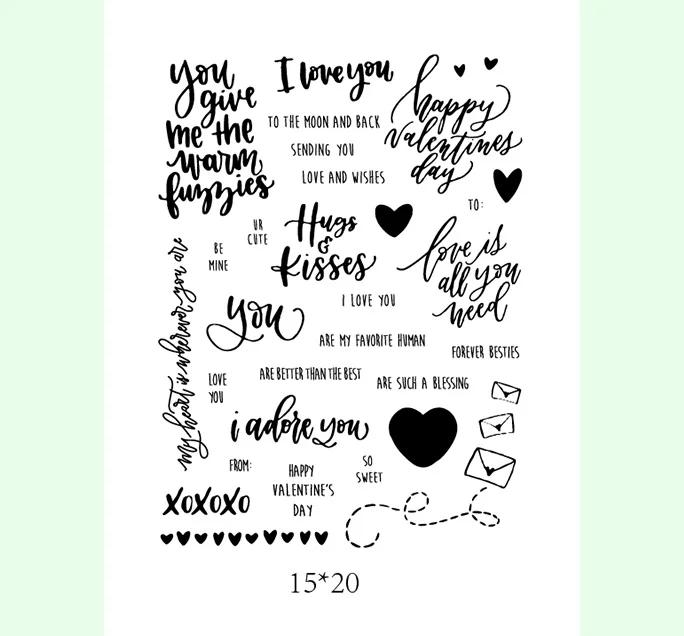 you
give
me the
warm
fuzzies
I love you
TO THE MOON AND BACK
SENDING YOU
LOVE AND WISHES
happy
valentines
day
TO:
UR
CUTE
BE
MINE
Hugs
&
kisses
love is
all you
need
my heart is wherever you are
I LOVE YOU
you
ARE MY FAVORITE HUMAN
FOREVER BESTIES
ARE BETTER THAN THE BEST
ARE SUCH A BLESSING
LOVE
YOU
i adore you
FROM:
HAPPY
VALENTINE'S
DAY
SO
SWEET
XOXOXO
15*20